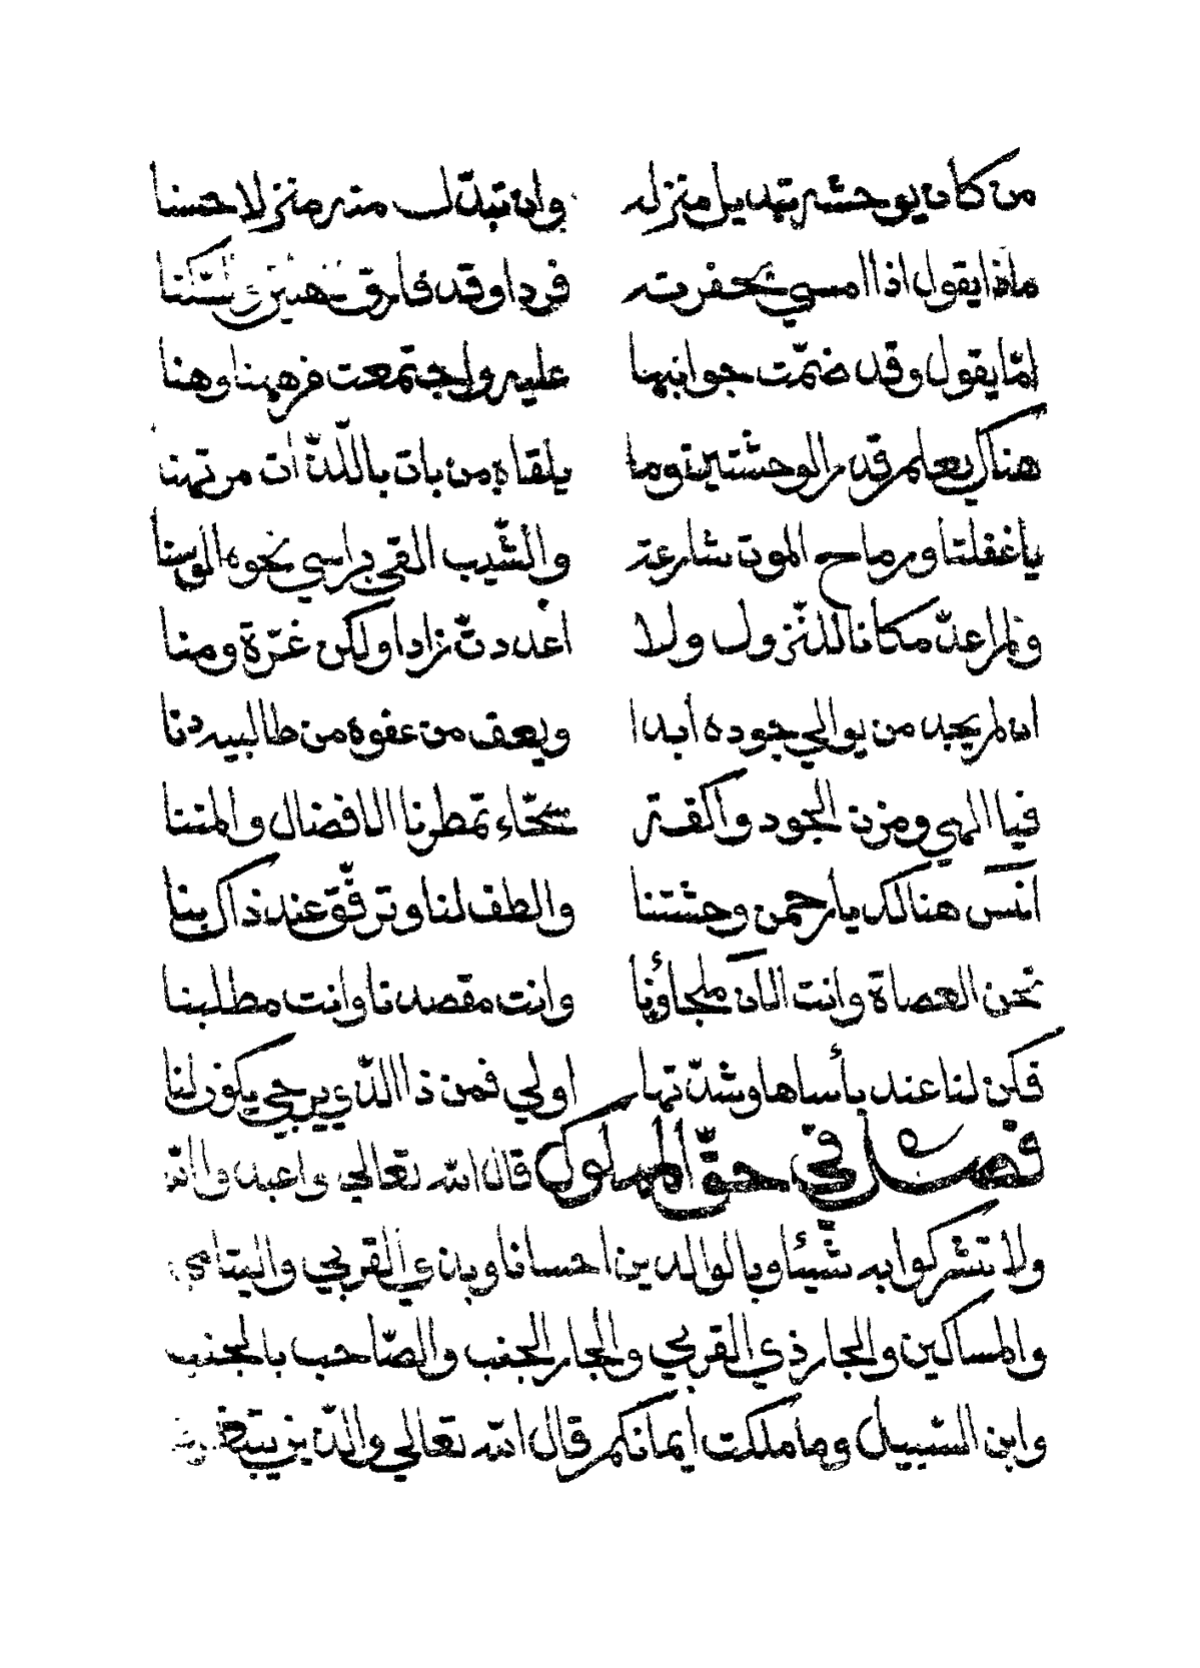 من كان يوحشه تبديل منزله وان تبدّل منه منزلا حسنا
ماذا يقول اذا امسي بحفرته فردا وقد فارق
امّا يقول وقد ضمّت جوانبها عليه واجتمعت من ههنا وهنا
هناك يعلم قدر الوحشتين وما يلقاه من بات باللّذّات مرتهنا
ياغفلتا ورماح الموت شارعة والشّيب القي براسي نحوه الوسنا
ولم اعدّ مكانا للنّزول ولا اعددتّ زادا ولكن غرّة ومنا
ان لم يجد من يوالي جوده ابدا ويعف من عفوه من طالبيه دنا
فيا الهي ومزن الجود واكفة سحّاء تمطرنا الافضال والمننا
آنس هنالك يارحمن وحشتنا والطف لنا وترفّق عند ذاك بنا
نحن العصاة وانت الآن ملجاؤنا وانت مقصدنا وانت مطلبنا
فكن لنا عند بأساها وشدّتها اولي فمن ذا الّذي يرجي يكون لنا
فصل في حقّ المملوك قال الله تعالي واعبدوا الله
ولا تشركوا به شيئا وبالوالدين احسانا وبذي القربي واليتامي
والمساكين والجار ذي القربي والجار الجنب والصّاحب بالجنب
وابن السّبيل وما ملكت ايمانكم قال الله تعالي والّذين